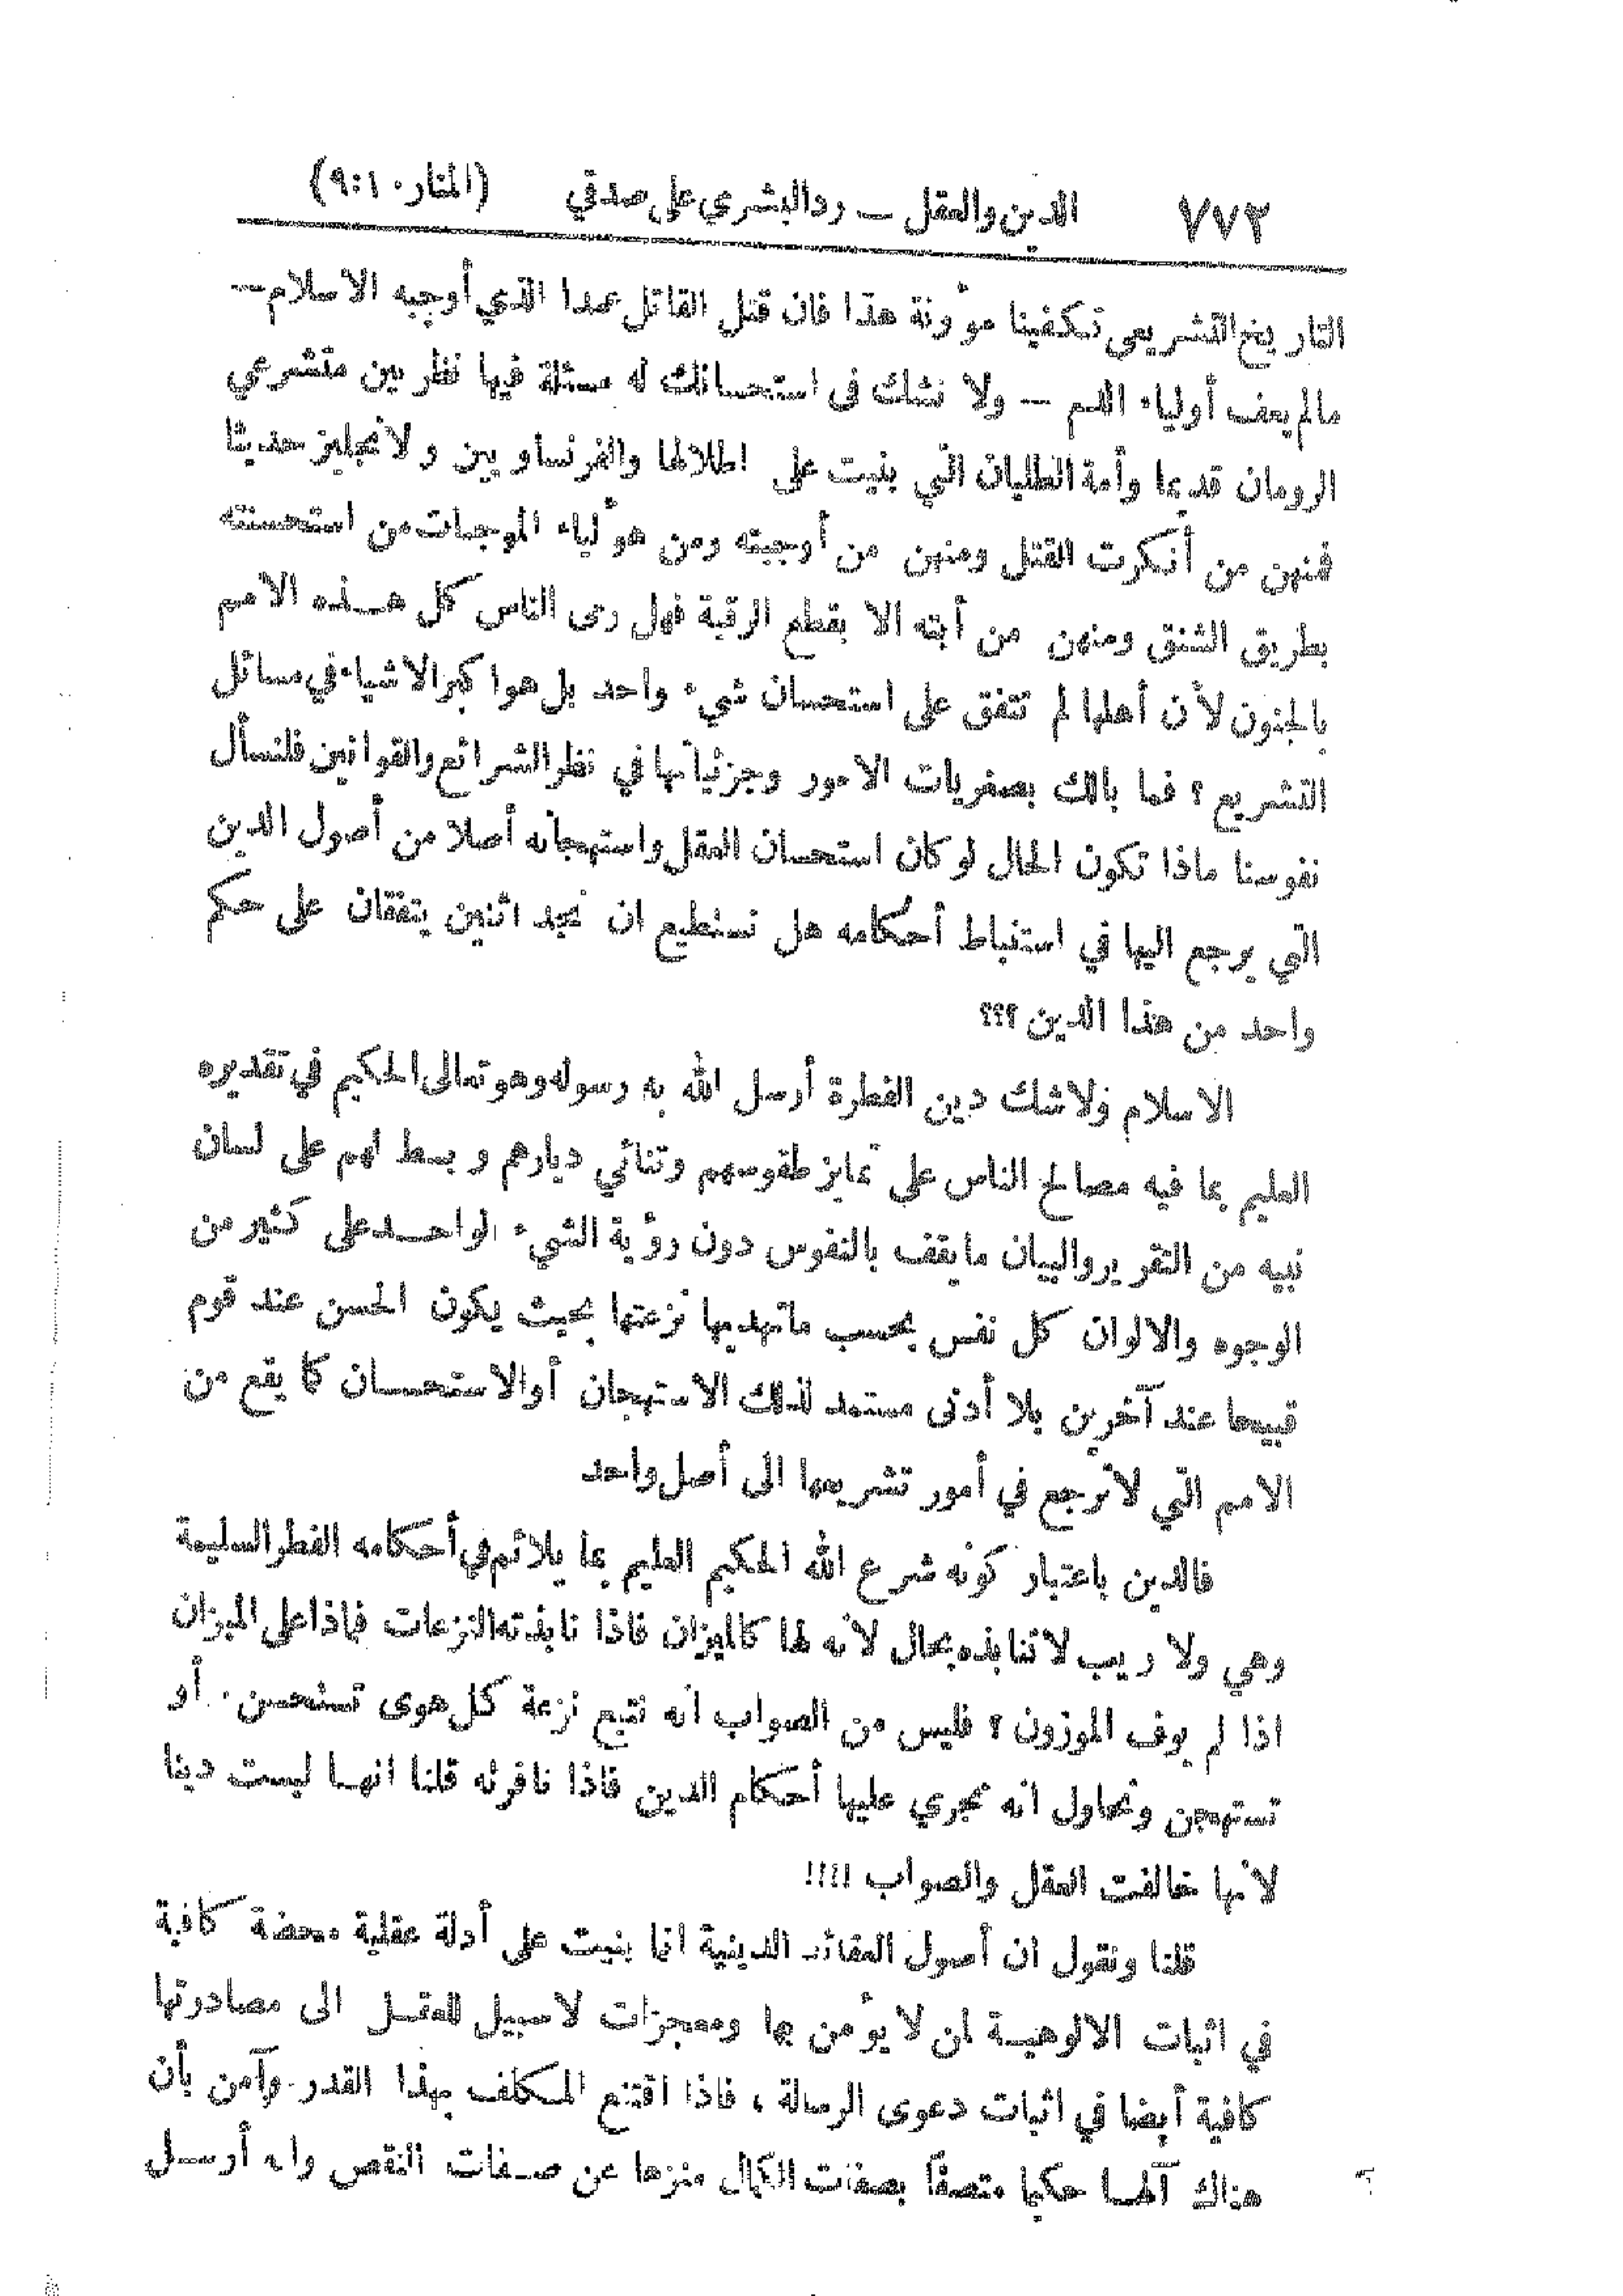 ٧٧٢ الدين والعقل — رد البشري على صدقي (المنار ١٠:٩)
التاريخ التشريعي تكفينا موٴونة هذا فان قتل القاتل عمدا الذي أوجبه الاسلام —
مالم يعف أولياء الدم — ولا نشك في استحسانك له مسئلة فيها نظر بين متشرعي
الرومان قديما وأمة الطليان التي بنيت على اطلالها والفرنساويين ولانجليز حديثا
فمنهن من أنكرت القتل ومنهن من أوجبته ومن هوٴلياء الموجبات من استحسنته
بطريق الشنق ومنهن من أبته الا بقطع الرقبة فهل رى الناس كل هذه الامم
بالجنون لأن أهلها لم تتفق على استحسان شيء واحد بل هوا كبر الاشياء في مسائل
التشريع ؟ فما بالك بصغريات الامور وجزئياتها في نظر الشرائع والقوانين فلنسأل
نفوسنا ماذا تكون الحال لو كان استحسان العقل واستهجانه أصلا من أصول الدين
التي يرجع اليها في استنباط أحكامه هل نستطيع ان نجد اثنين يتفقان على حكم
واحد من هذا الدين ؟؟؟
الاسلام ولاشك دين الفطرة أرسل الله به رسوله وهو تعالى الحكيم في تقديره
العليم بما فيه مصالح الناس على تمايز طقوسهم وتنائي ديارهم وبسط لهم على لسان
نبيه من التقرير والبيان ما يقف بالنفوس دون روٴية الشيء الواحد على كثير من
الوجوه والالوان كل نفس بحسب ماتهديها نزعتها بحيث يكون الحسن عند قوم
قبيحا عند آخرين بلا أدنى مستمد لذلك الاستهجان أو الاستحسان كما يقع من
الامم التي لاترجع في أمور تشريعها الى أصل واحد
فالدين باعتبار كونه شرع الله الحكيم العليم بما يلائم في أحكامه الفطر السليمة
وهي ولا ريب لاتنابذه بحال لأنه لها كالميزان فاذا نابذته النزعات فماذا على الميزان
اذا لم يوف الموزون ؟ فليس من الصواب انه نتبع نزعة كل هوى تستحسن. أو
تستهجن ونحاول انه نجري عليها أحكام الدين فاذا نافرته قلنا انها ليست دينا
لانها خالفت العقل والصواب !!!!
قلنا ونقول ان أصول العقائد الدينية انما بنيت على أدلة عقلية محضة كافية
في اثبات الالوهية لمن لا يوٴمن بها ومعجزات لاسبيل للعقل الى مصادرتها
كافية أيضا في اثبات دعوى الرسالة ، فاذا اقتنع المكلف بهذا القدر وآمن بأن
هناك آلها حكيما متصفاً بصفات الكمال منزها عن صفات النقص وانه أرسل